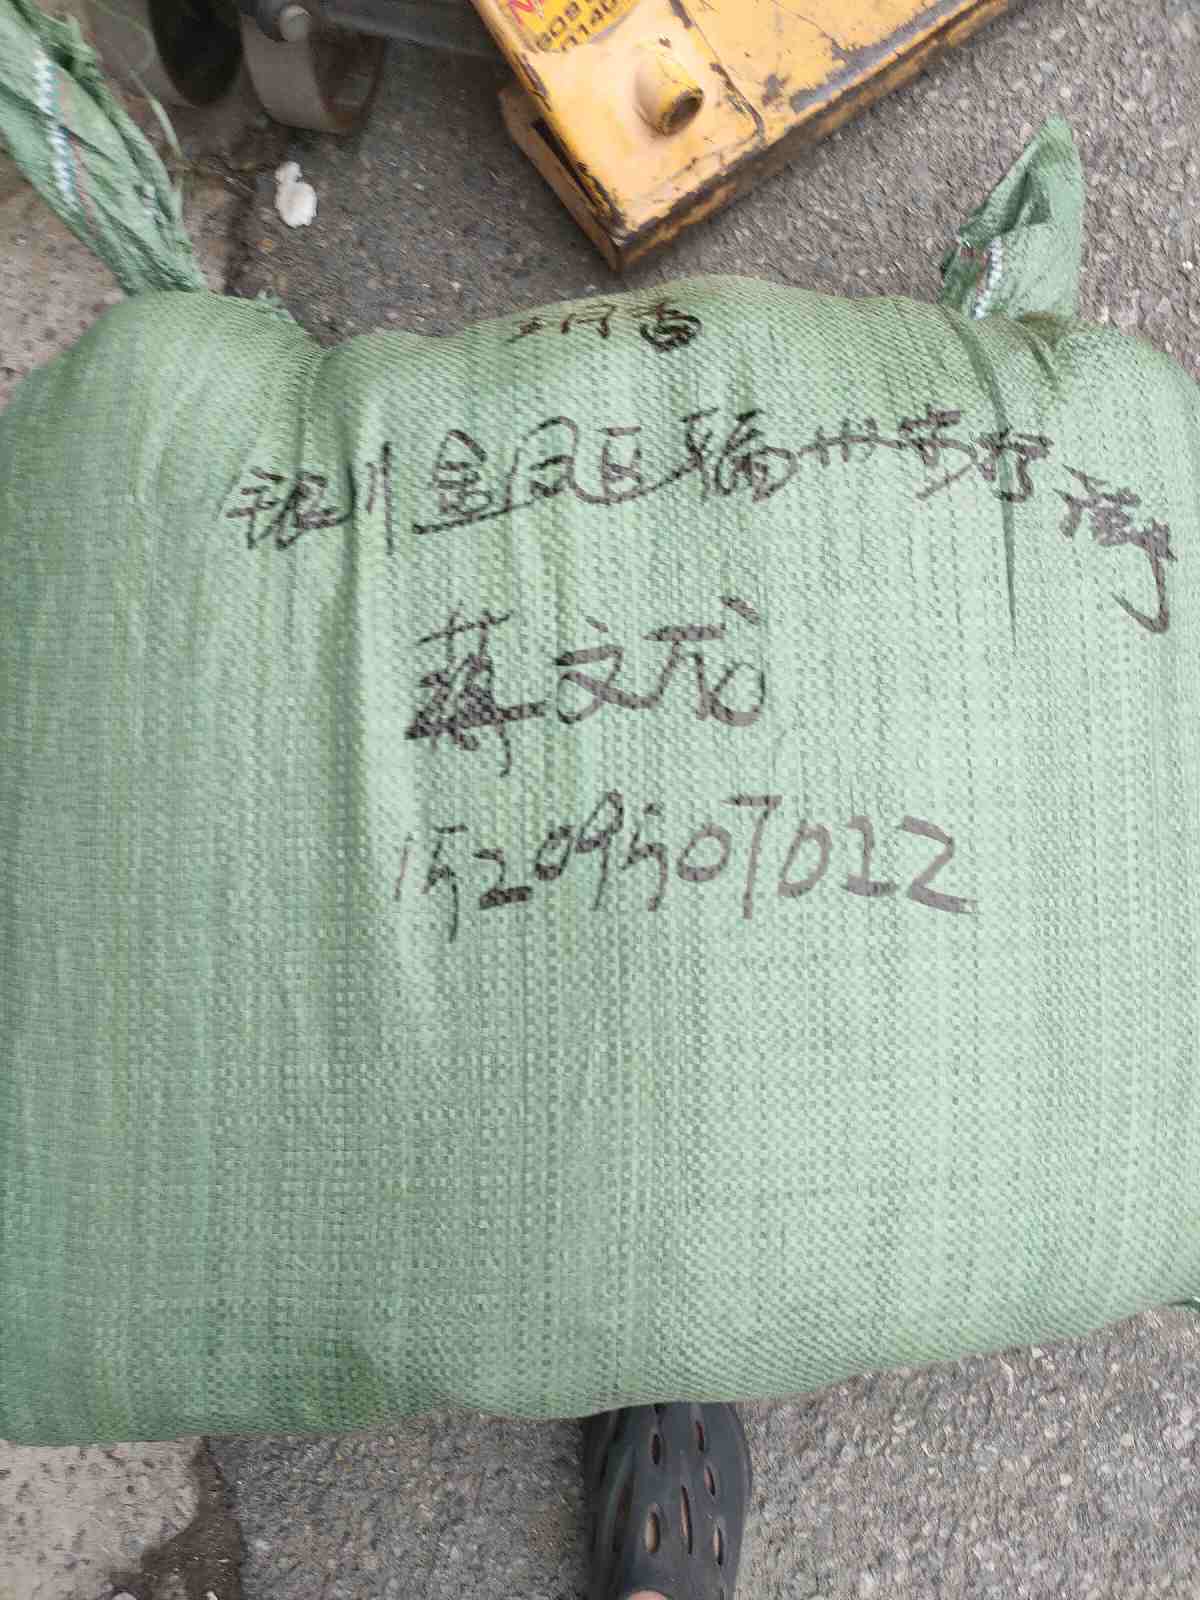 银川金凤区骊州步行街
蒋文龙
15209507022